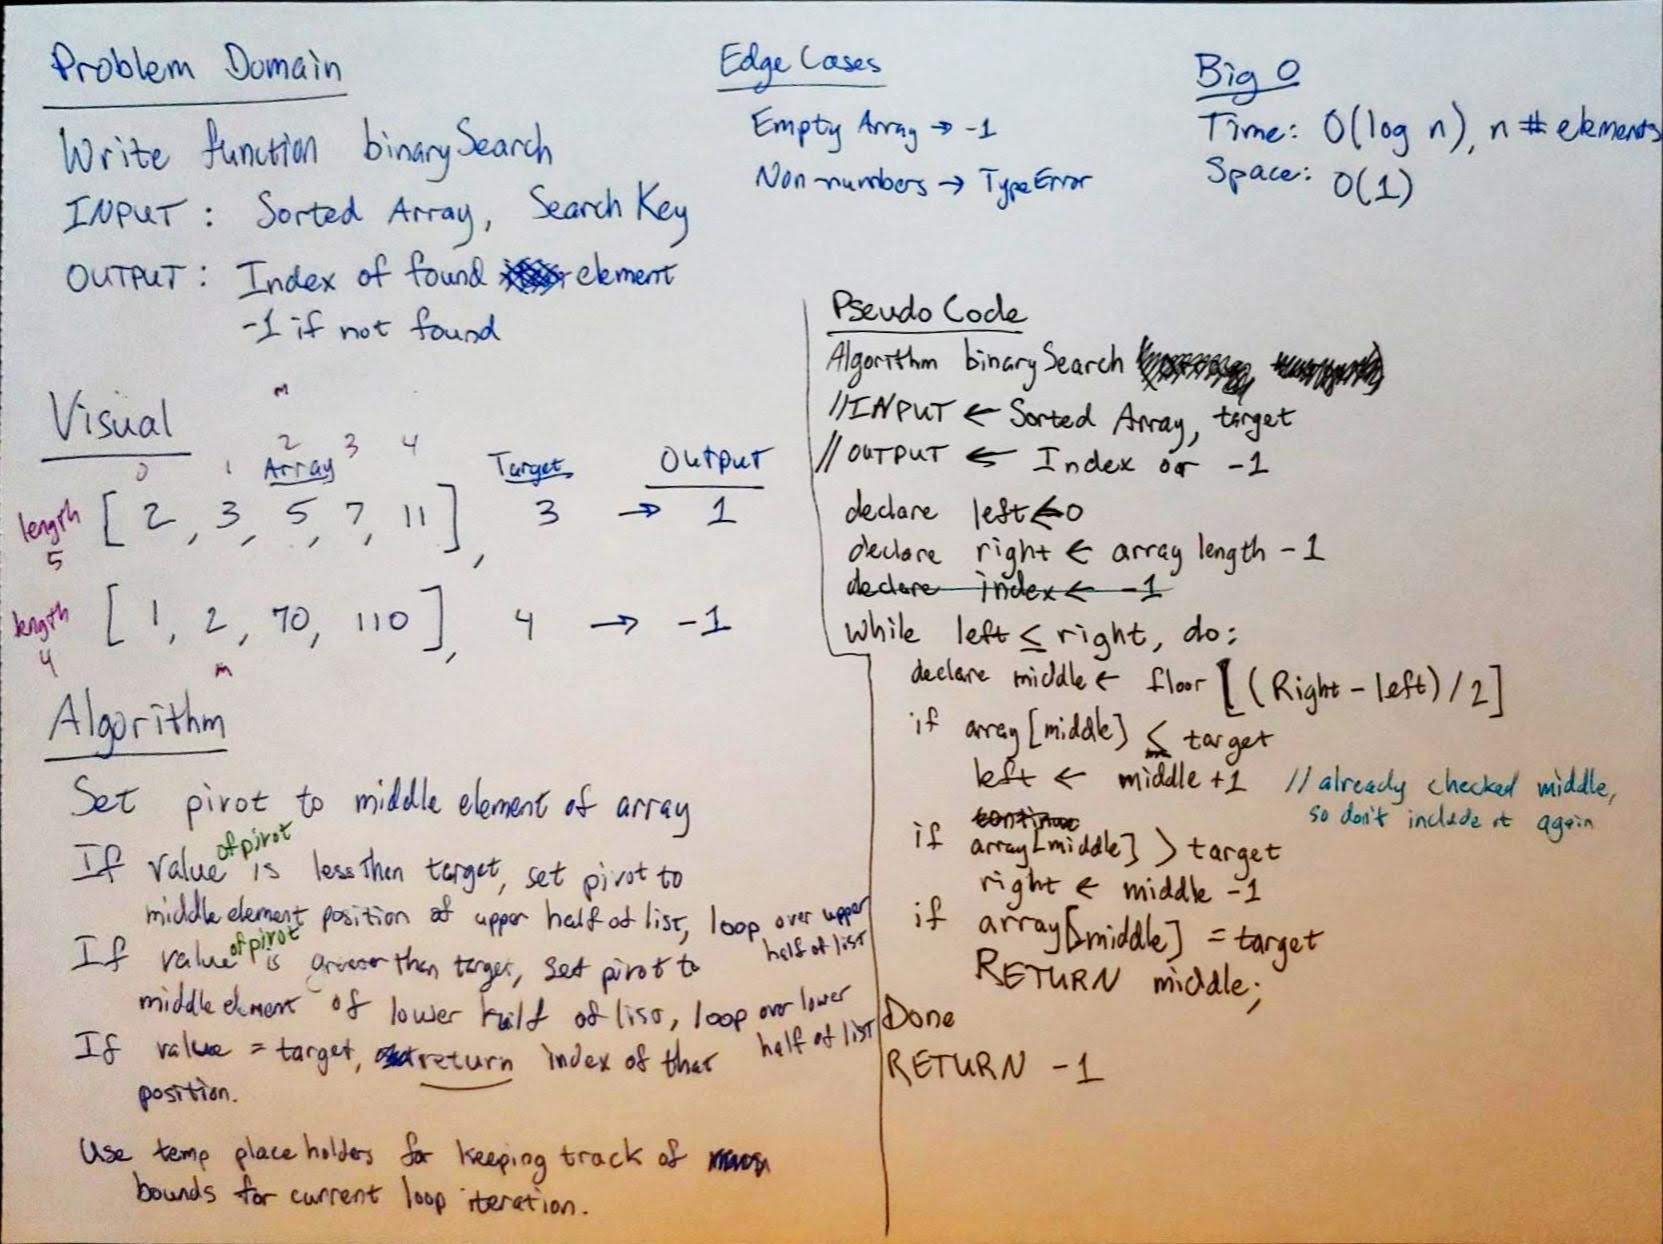 Problem Domain
Write function binarySearch
INPUT: Sorted Array, Search Key
OUTPUT: Index of found element
-1 if not found
Edge Cases
Empty Array → -1
Non-numbers → TypeError
Big O
Time: O(log n), n # elements
Space: O(1)
Visual
m
0 1 2 3 4
Array Target Output
length 5 [2, 3, 5, 7, 11], 3 → 1
length 4 [1, 2, 70, 110], 4 → -1
m
Algorithm
Set pivot to middle element of array
If value of pivot is less then target, set pivot to
middle element position of upper half of list, loop over upper
half of list
If value of pivot is greater than target, set pivot to
middle element of lower half of list, loop over lower
half of list
If value = target, return index of that
position.
Use temp place holders for keeping track of
bounds for current loop iteration.
Pseudo Code
Algorithm binarySearch
//INPUT ← Sorted Array, target
//OUTPUT ← Index or -1
declare left ← 0
declare right ← array length -1
declare index ← -1
While left ≤ right, do:
declare middle ← floor[(Right - left)/2]
if array[middle] < target
left ← middle +1 //already checked middle,
so don't include it again
continue
if array[middle] > target
right ← middle -1
if array[middle] = target
RETURN middle;
Done
RETURN -1